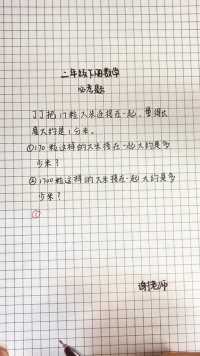 二年级下册数学
必考题
丁丁把17粒大米连接在一起,量得长
度大约是1分米。
①170粒这样的大米接在一起大约是多
少米?
②1700粒这样的大米接在一起大约是多
少米?
①
谢老师